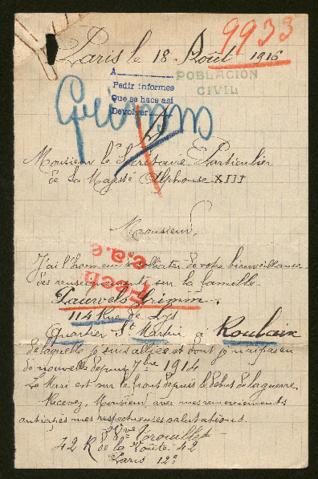 9933
Paris le 18 Août 1916
A
Pedir informes
Que se hace así
Devolver
POBLACION
CIVIL
Monsieur le Secrétaire Particulier
de Sa Majesté Alphonse XIII
Monsieur,
J'ai l'honneur de solliciter de votre bienveillance
des renseignements sur la famille
Pauwels
114 Rue de Lys
Quartier St Martin à Roubaix
de laquelle je suis alliée et dont je n'ai pas eu
de nouvelle depuis 7bre 1914
Le Mari est sur le front depuis le début de la guerre.
Recevez, Monsieur avec mes remerciements
anticipés mes respectueuses salutations.
42 R de la Voûte 42
Paris 12e